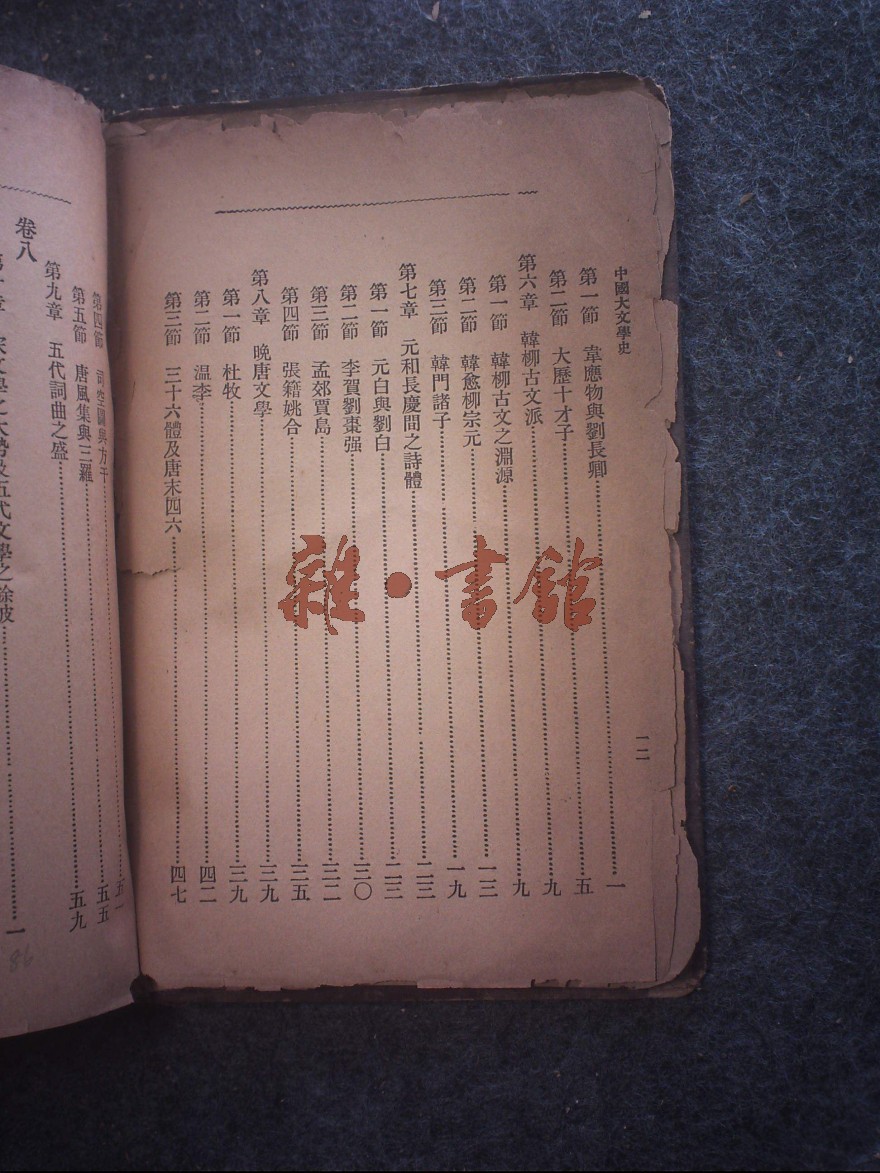 中國大文學史
第一節 韋應物與劉長卿 一
第二節 大歷十才子 五
第六章 韓柳古文派 九
第一節 韓柳古文之淵源 九
第二節 韓愈柳宗元 一三
第三節 韓門諸子 一九
第七章 元和長慶間之詩體 二三
第一節 元白與劉白 二三
第二節 李賀劉棗强 三〇
第三節 孟郊賈島 三二
第四節 張籍姚合 三五
第八章 晚唐文學 三九
第一節 杜牧 三九
第二節 温李 四二
第三節 三十六體及唐末四六 四七
一二
第四節 司空圖與方干 五一
第五節 唐風集與三羅 五五
第九章 五代詞曲之盛 五九
卷八
第一章 宋文學之大勢及五代文學之餘波 一
雜·書館